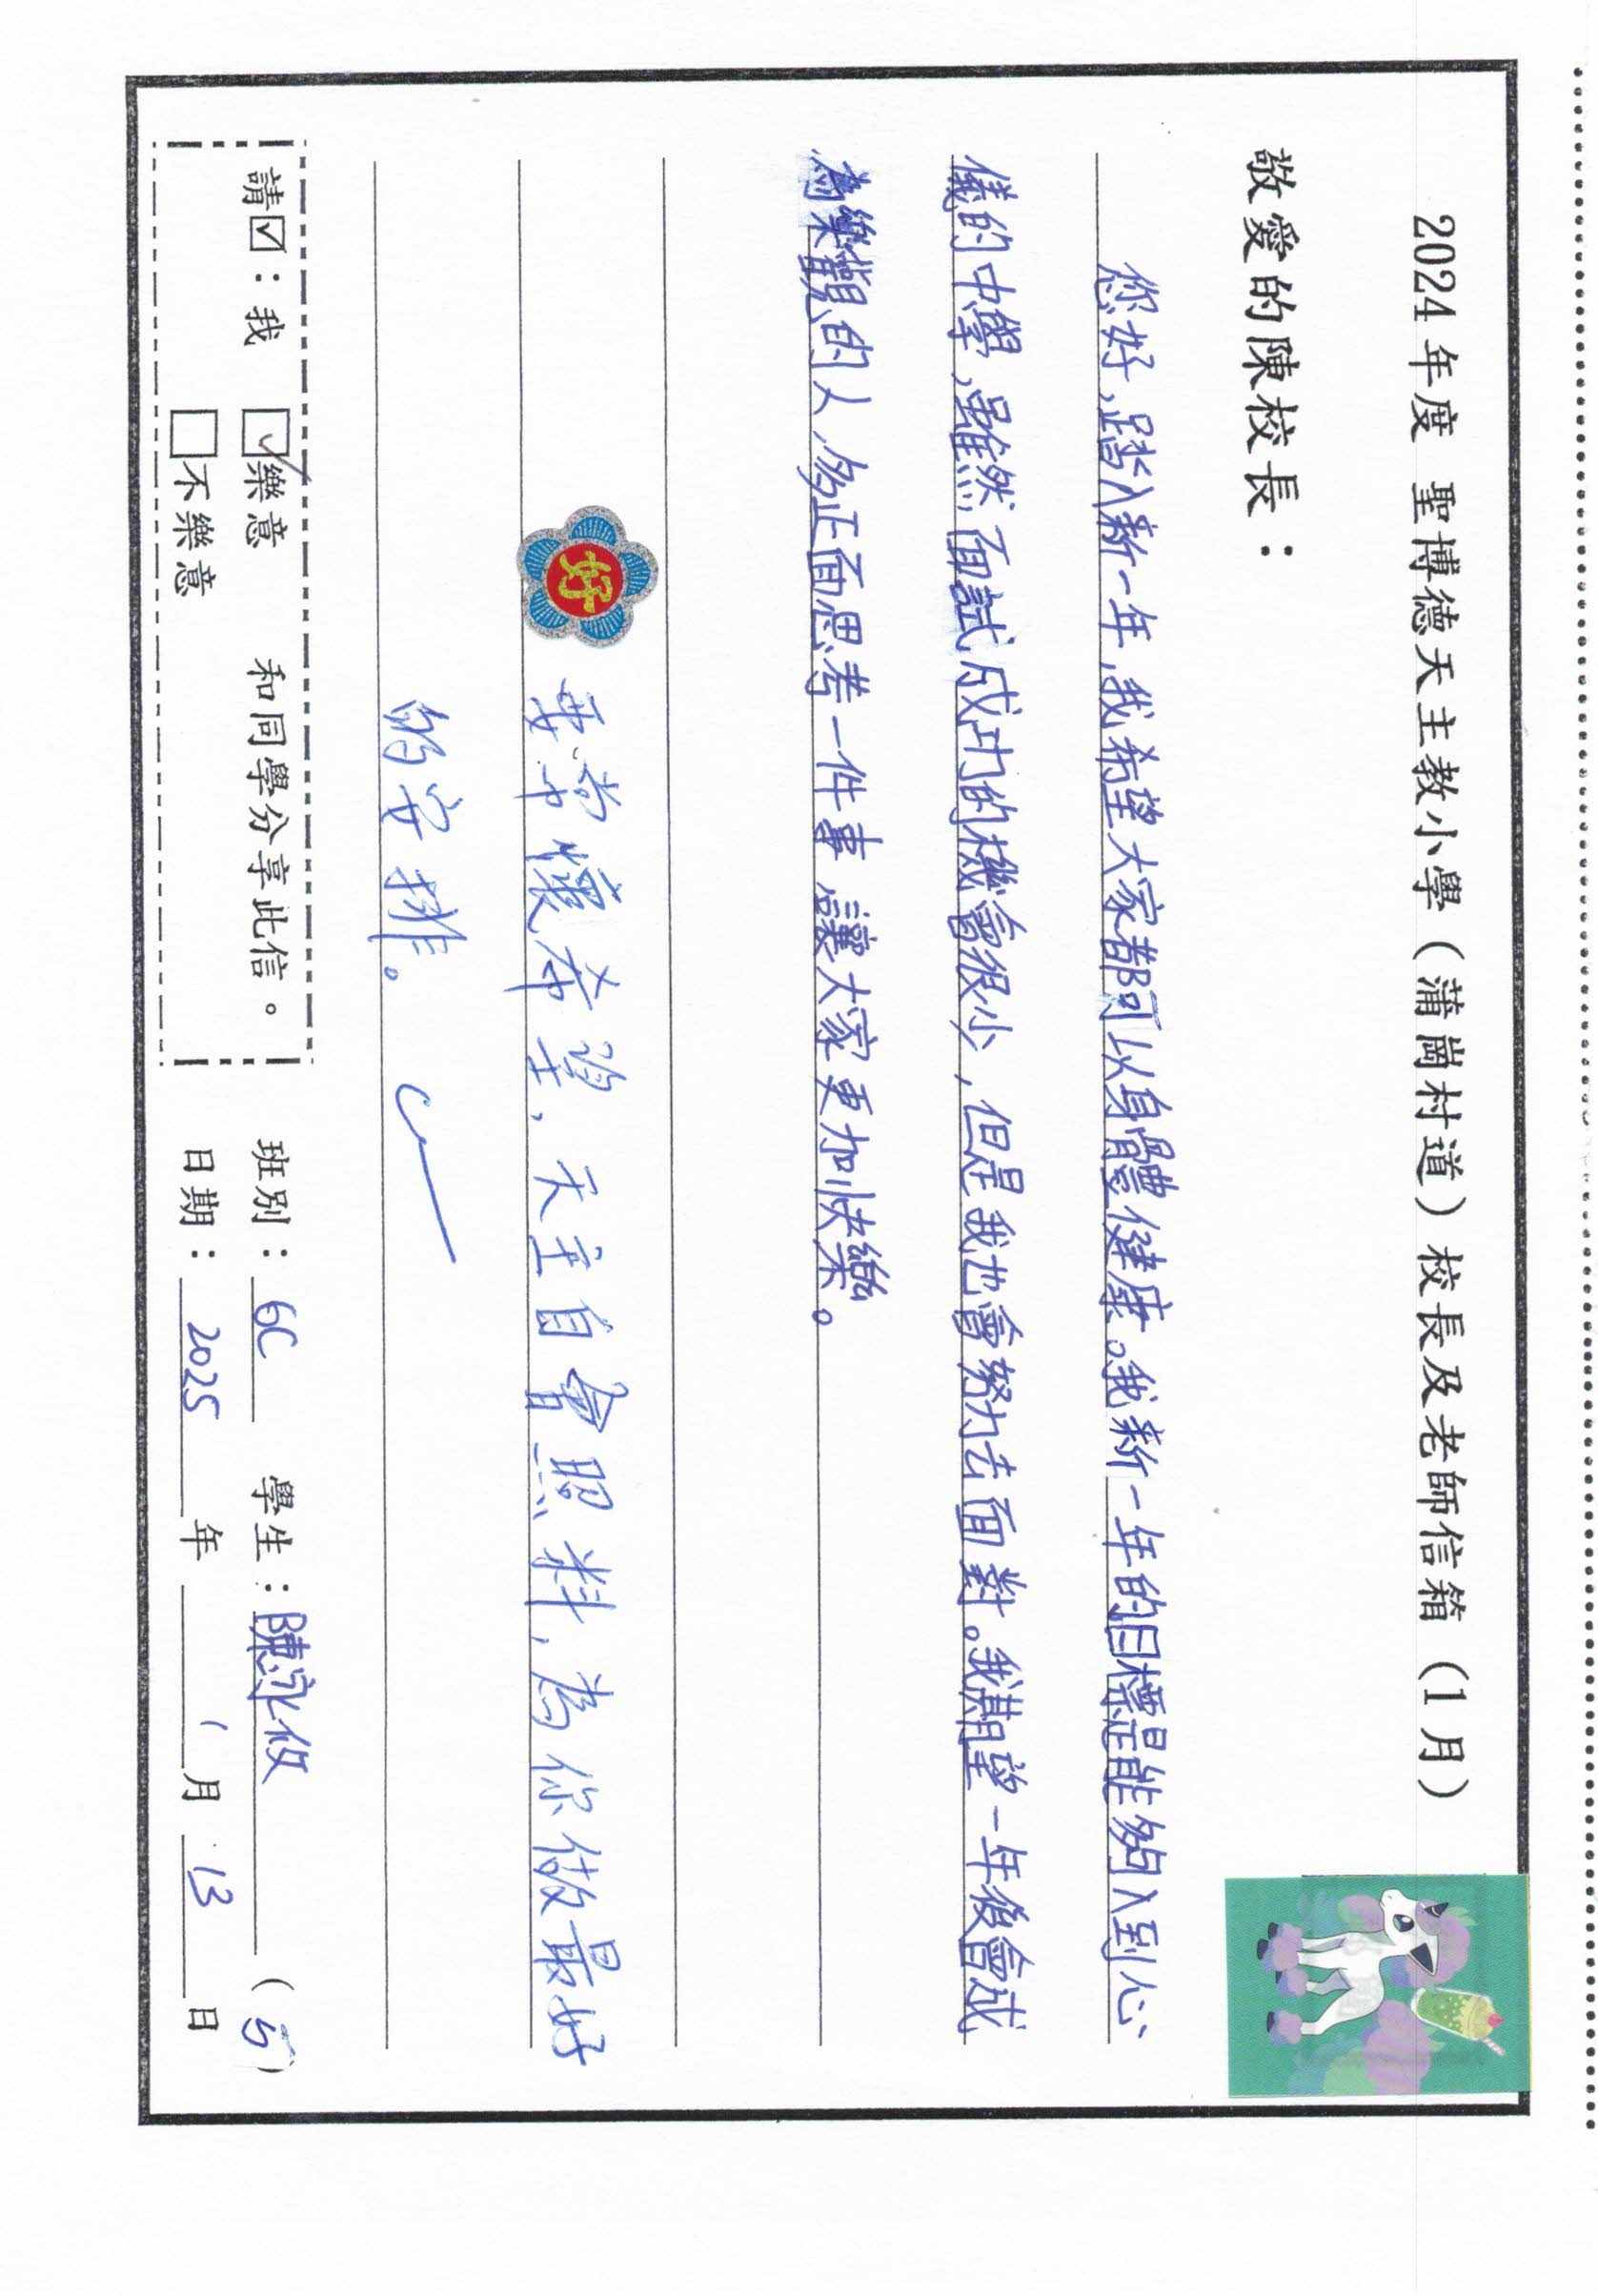 2024年度 聖博德天主教小學（蒲崗村道）校長及老師信箱（1月）
敬愛的陳校長：
您好,踏入新一年,我希望大家都可以身體健康。我新一年的目標是能夠入到心
儀的中學,雖然面試成功的機會很小,但是我也會努力去面對。我期望一年後會成
為樂觀的人,多正面思考一件事,讓大家更加快樂。
好
要常懷希望,天主自會照料,為你做最好
的安排。
請☑：我 ☑樂意 和同學分享此信。
□不樂意
班別：6C 學生：陳泳攸（5）
日期：2025年1月13日